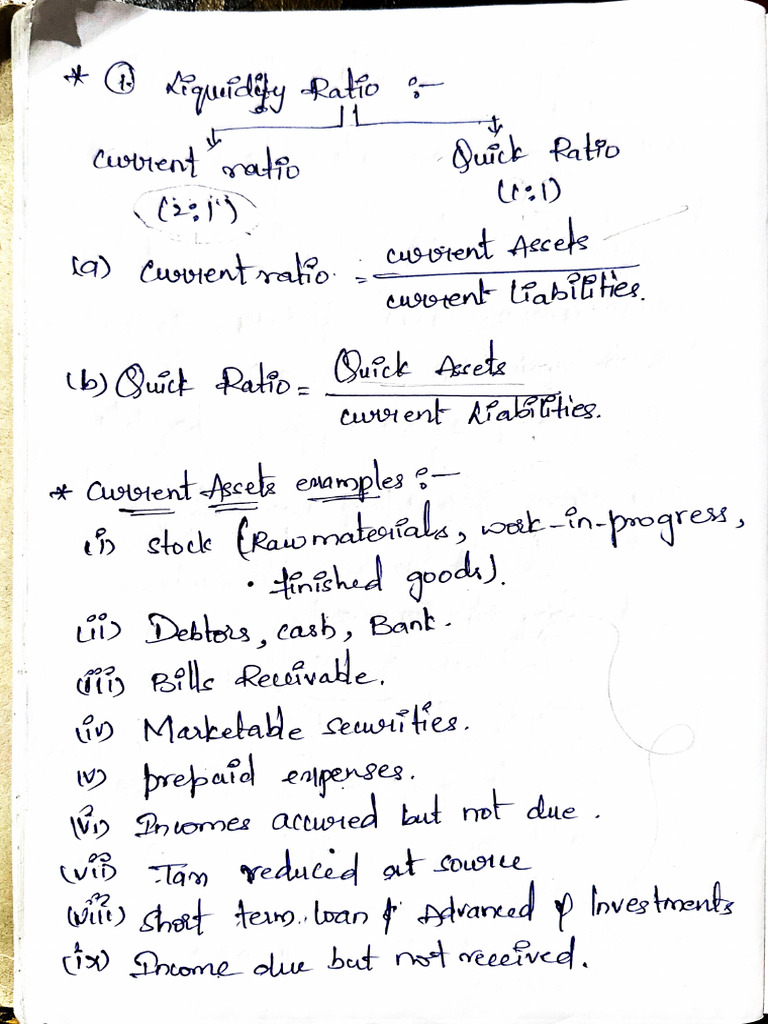 * ① Liquidity Ratio :-
Current ratio Quick Ratio
(2:1) (1:1)
(a) Current ratio = current Assets
current Liabilities.
(b) Quick Ratio = Quick Assets
current Liabilities.
* Current Assets examples :-
(i) stock (Raw materials, work-in-progress,
finished goods).
(ii) Debtors, cash, Bank.
(iii) Bills Receivable.
(iv) Marketable securities.
(v) prepaid expenses.
(vi) Incomes accured but not due.
(vii) Tax reduced at source
(viii) short term loan & Advanced & Investments
(ix) Income due but not received.